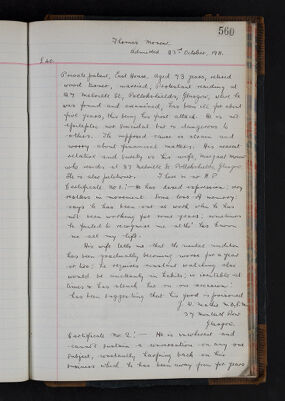 560
Thomas Morrow
Admitted 23rd October, 1911.
Private patient, East House. Aged 73 years, retired
wood turner, married, Protestant residing at
27 Melville St, Pollokshields, Glasgow, where he
was found and examined, has been ill for about
five years, this being his first attack. He is not
epileptic not suicidal but is dangerous to
others. The supposed cause is alcohol and
worry about financial matters. His nearest
relative and wife is his wife, Margaret Morrow
who resides at 27 Melville St. Pollokshields, Glasgow
She is also petitioner. There is no H.P.
Certificate No. 1:- He has dazed expression; very
restless in movement. Some loss of memory:
says he has been out at work when he has
not been working for some years; sometimes
he failed to recognise me altho' has known
me all my life.
His wife tells me that the mental condition
has been gradually becoming worse for a year
or two; he requires constant watching else
would be uncleanly in habits; is irritable at
times & has struck her on one occasion:
has been suggesting that his food is poisoned
Glasgow
Certificate No. 2:- He is incoherent and
cannot sustain a conversation on any one
subject, constantly harping back on his
business which he has been away from for years